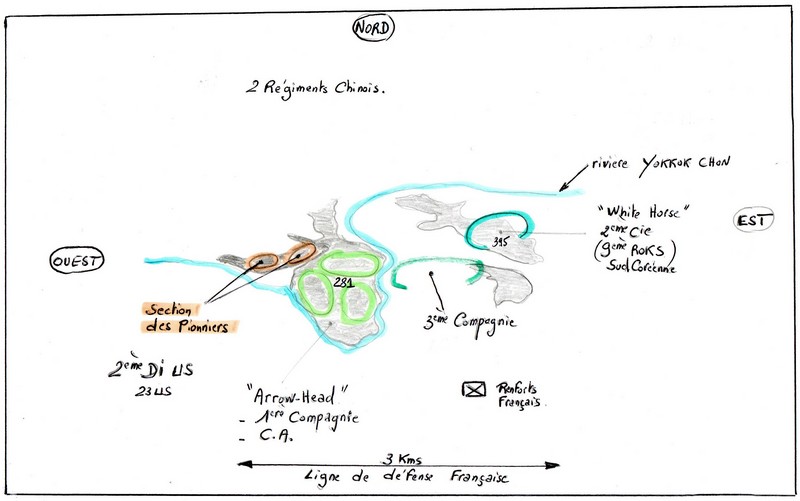 NORD
2 Régiments Chinois.
rivière YOKKOK CHON
"White Horse"
2ème Cie
(9ème ROKS)
Sud Coréenne
EST
OUEST
395
281
3ème Compagnie
Section
des Pionniers
2ème Di US
23 US
"Arrow-Head"
- 1ère Compagnie
- C.A.
Renforts
Français.
3 Kms
Ligne de défense Française